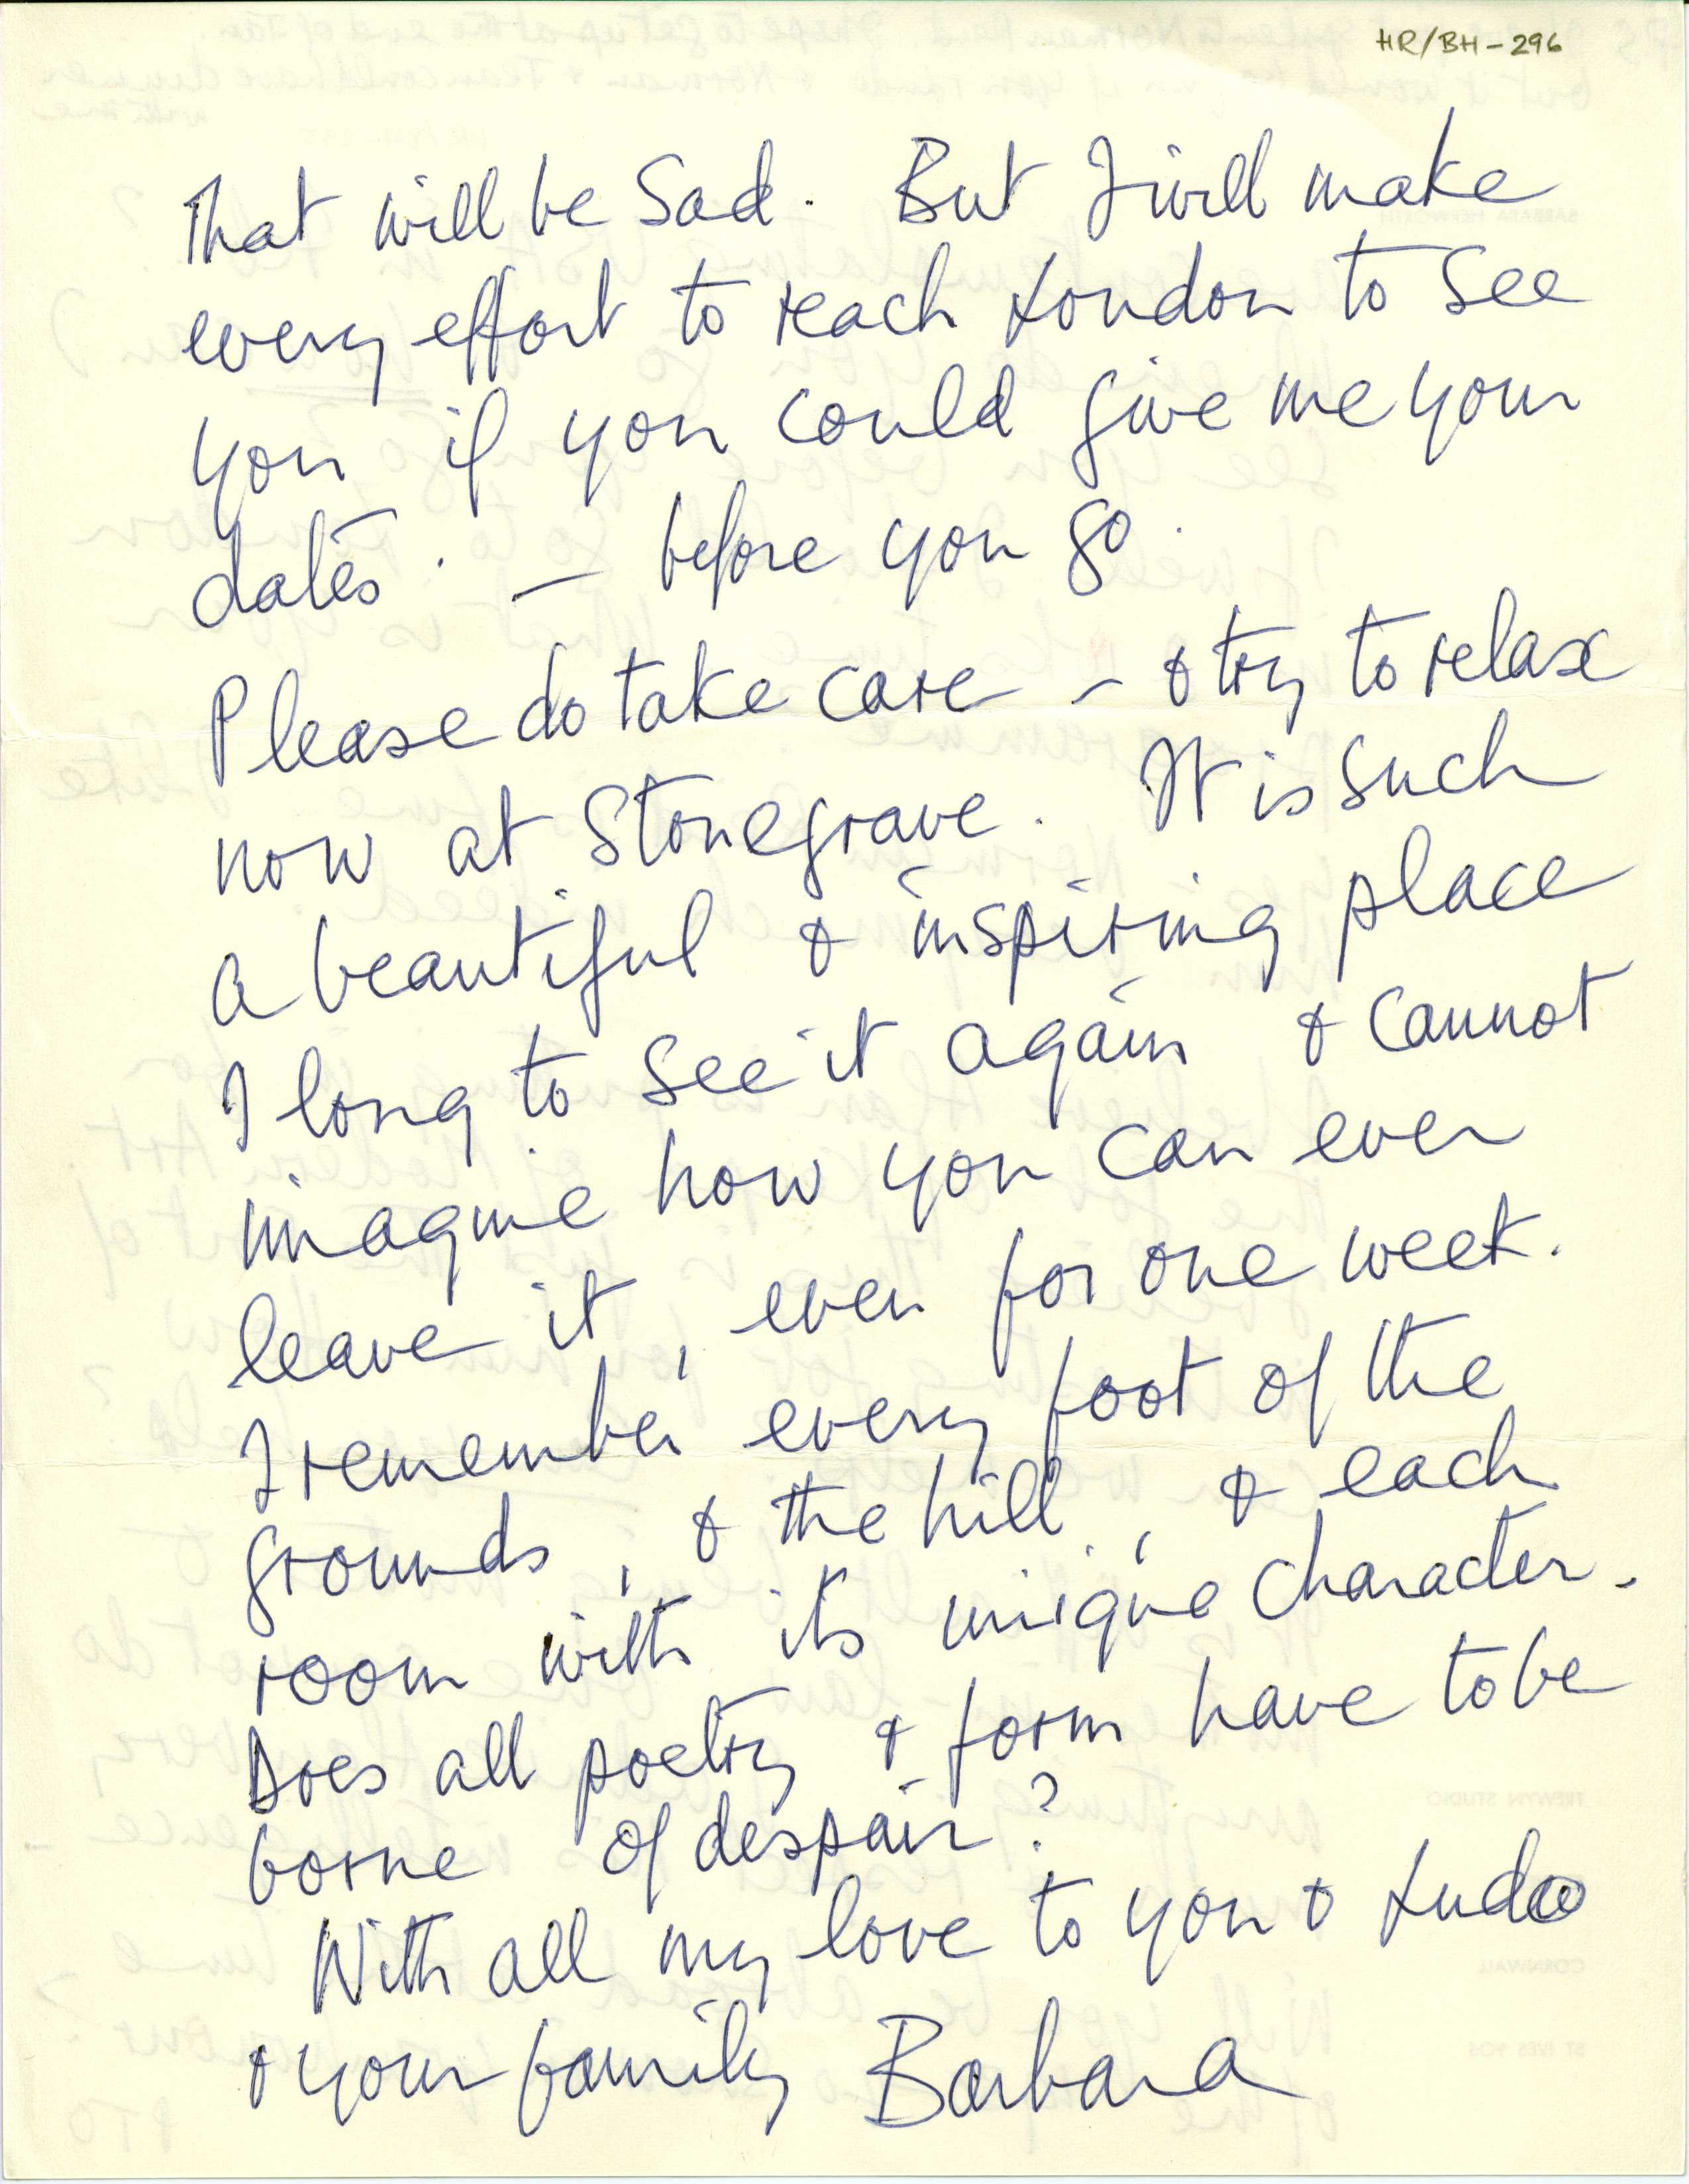 HR/BH-296
That will be Sad. But I will make
every effort to reach London to See
you if you could give me your
dates. — before you go.
Please do take care - & try to relax
now at Stonegrave. It is such
a beautiful & inspiring place
I long to see it again & cannot
imagine how you can ever
leave it, even for one week.
I remember every foot of the
grounds, & the hill, & each
room with its unique character.
Does all poetry & form have to be
borne of despair?
With all my love to you & Ludo
& your family Barbara